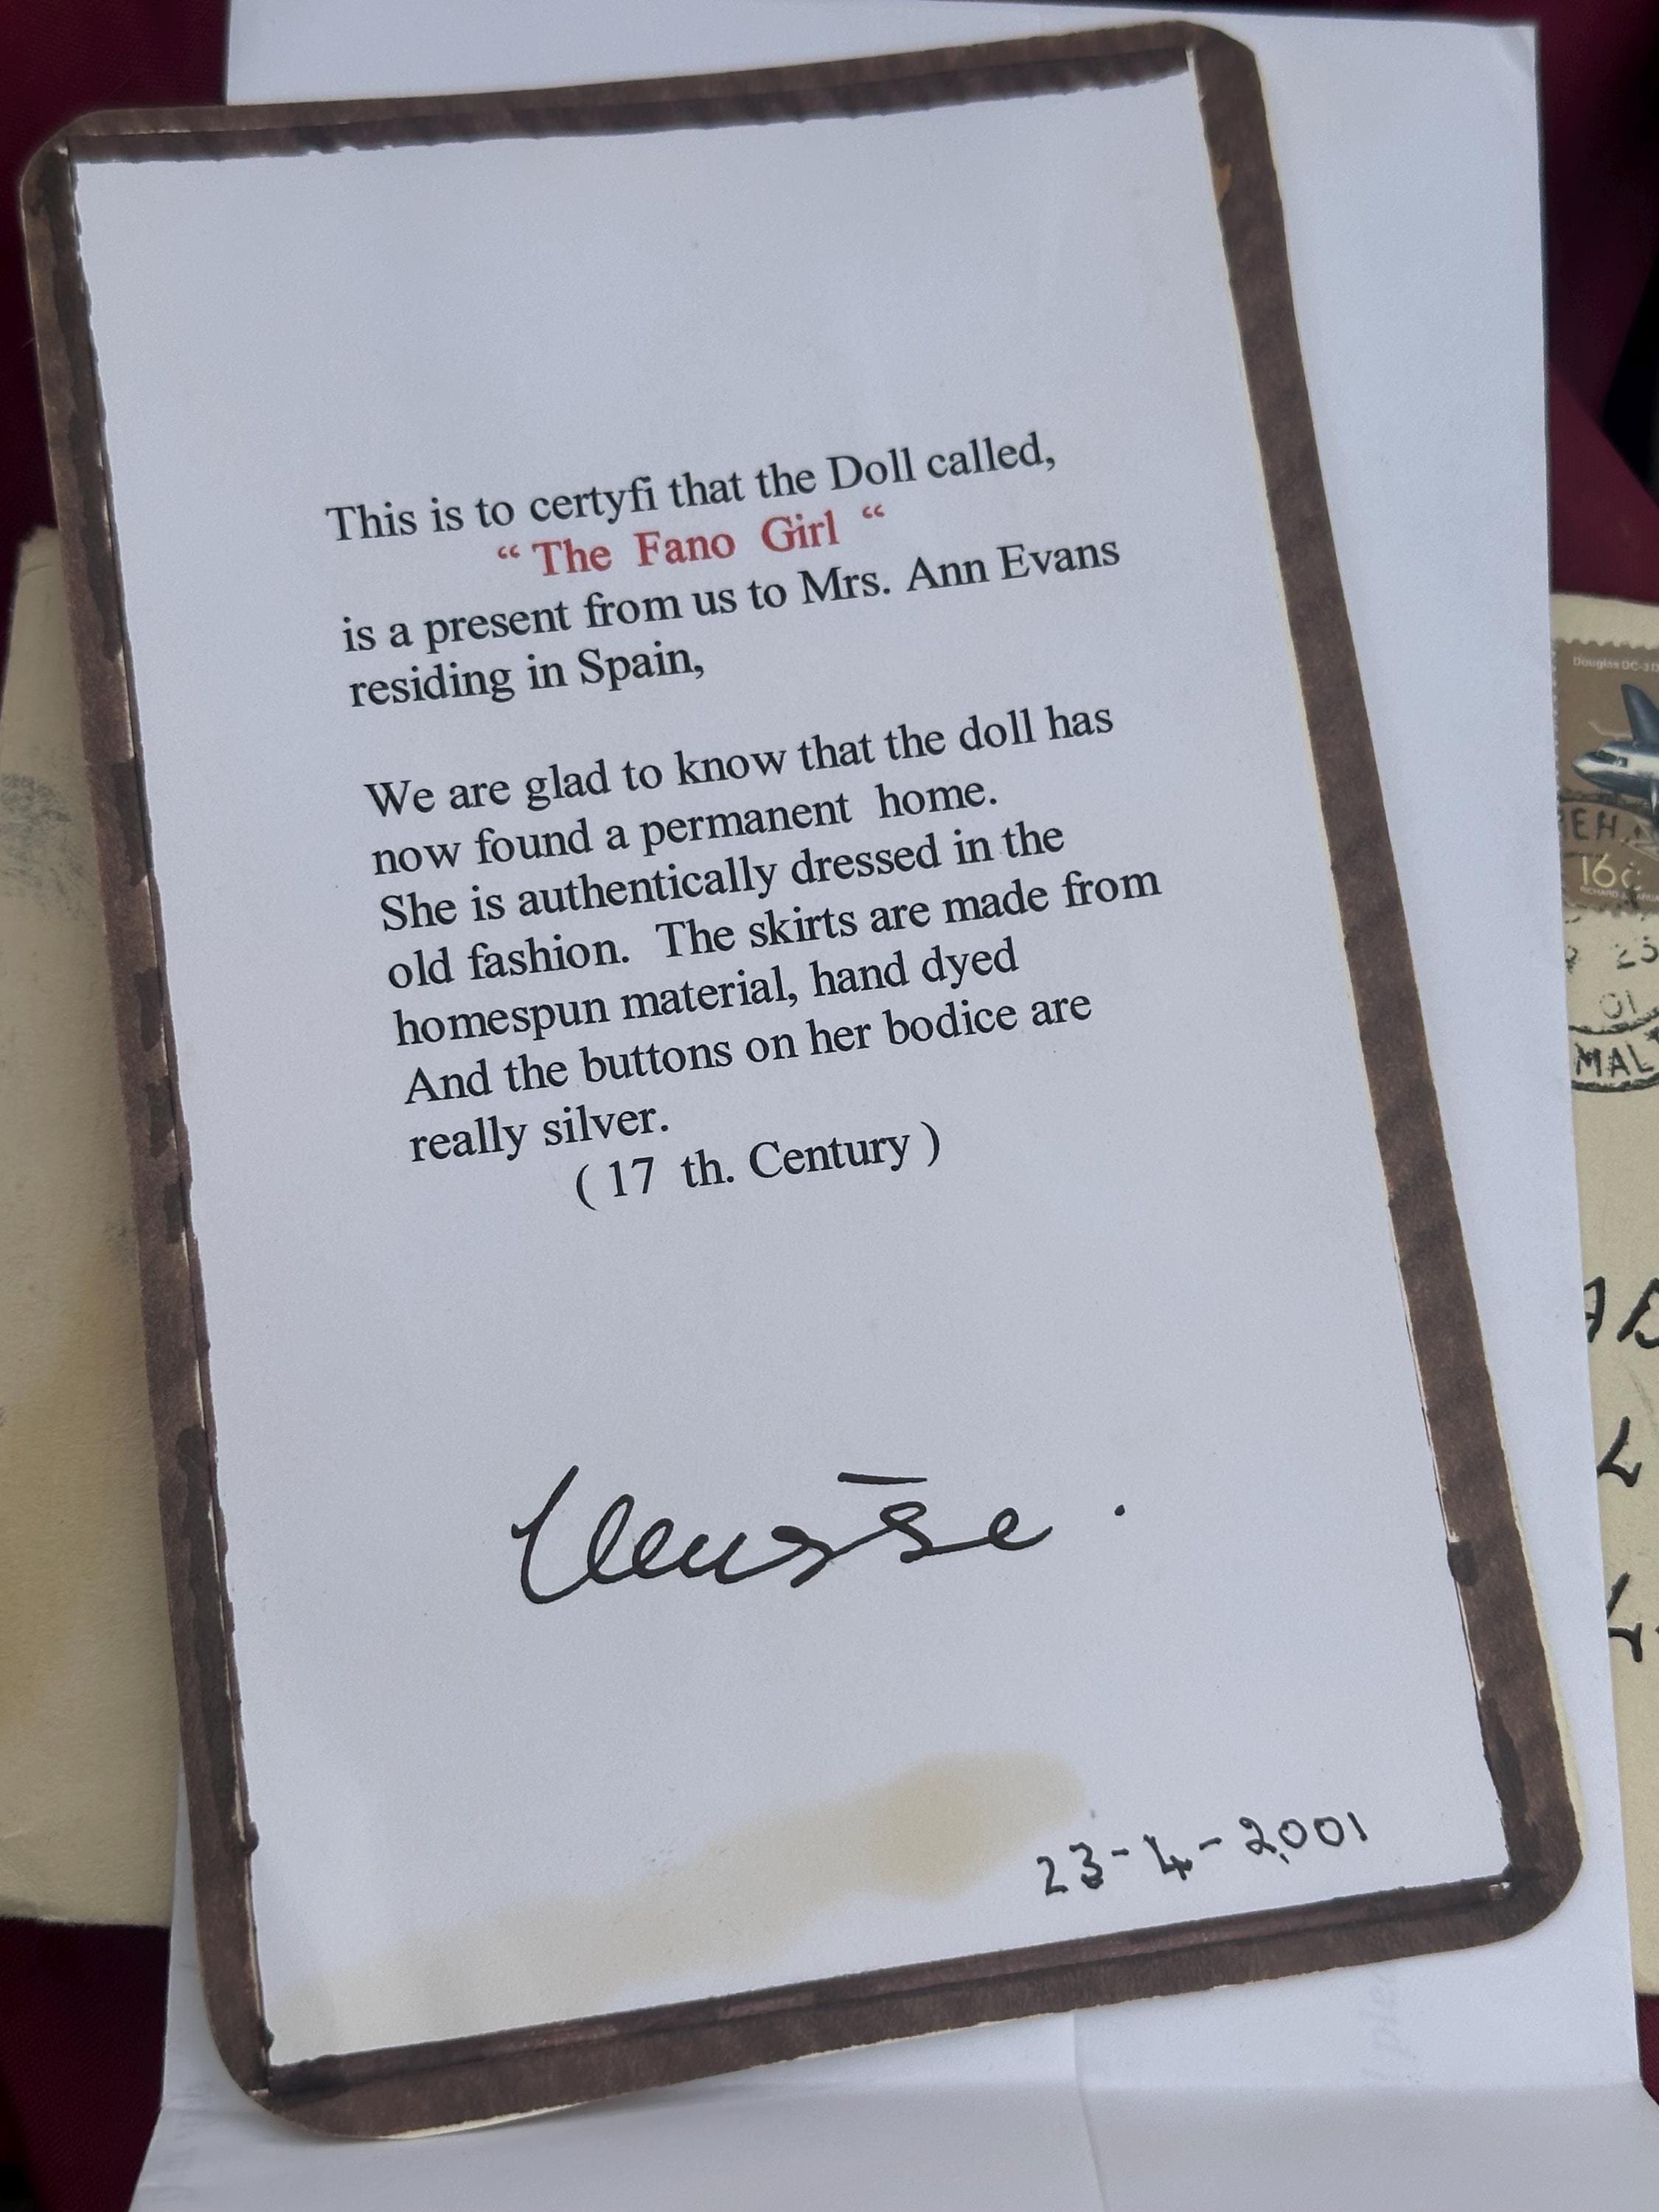 This is to certyfi that the Doll called,
“ The Fano Girl “
is a present from us to Mrs. Ann Evans
residing in Spain,
We are glad to know that the doll has
now found a permanent home.
She is authentically dressed in the
old fashion. The skirts are made from
homespun material, hand dyed
And the buttons on her bodice are
really silver.
( 17 th. Century )
23-4-2001
Douglas DC-3
16c
23
01
MAL